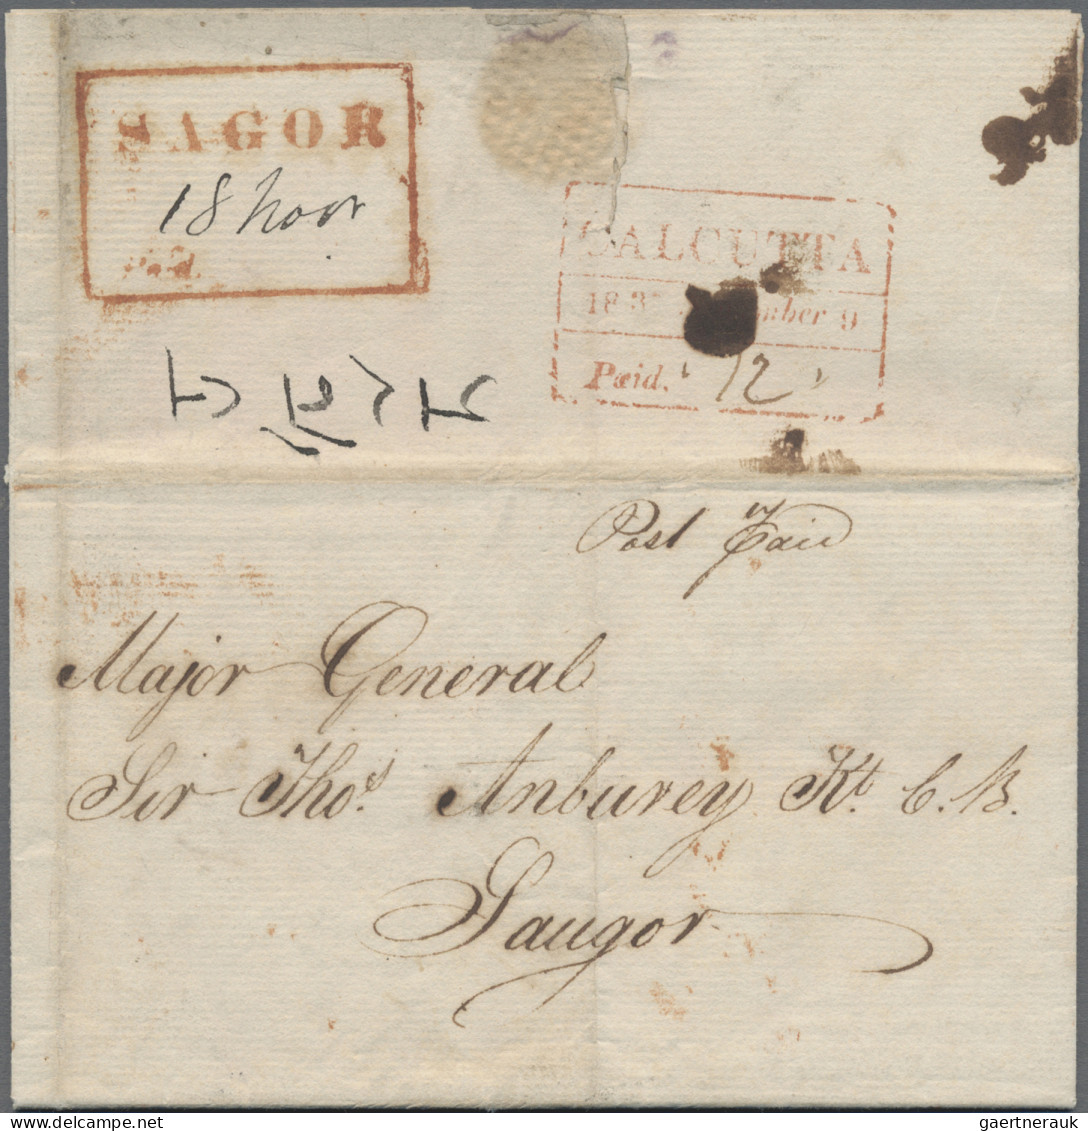 SAGOR
18 Novr
Paid.
CALCUTTA
183 mber 9
Paid. 12
Post Paid
Major General
Sir Thos. Anburey Kt. C.B.
Saugor
gaertnerauk